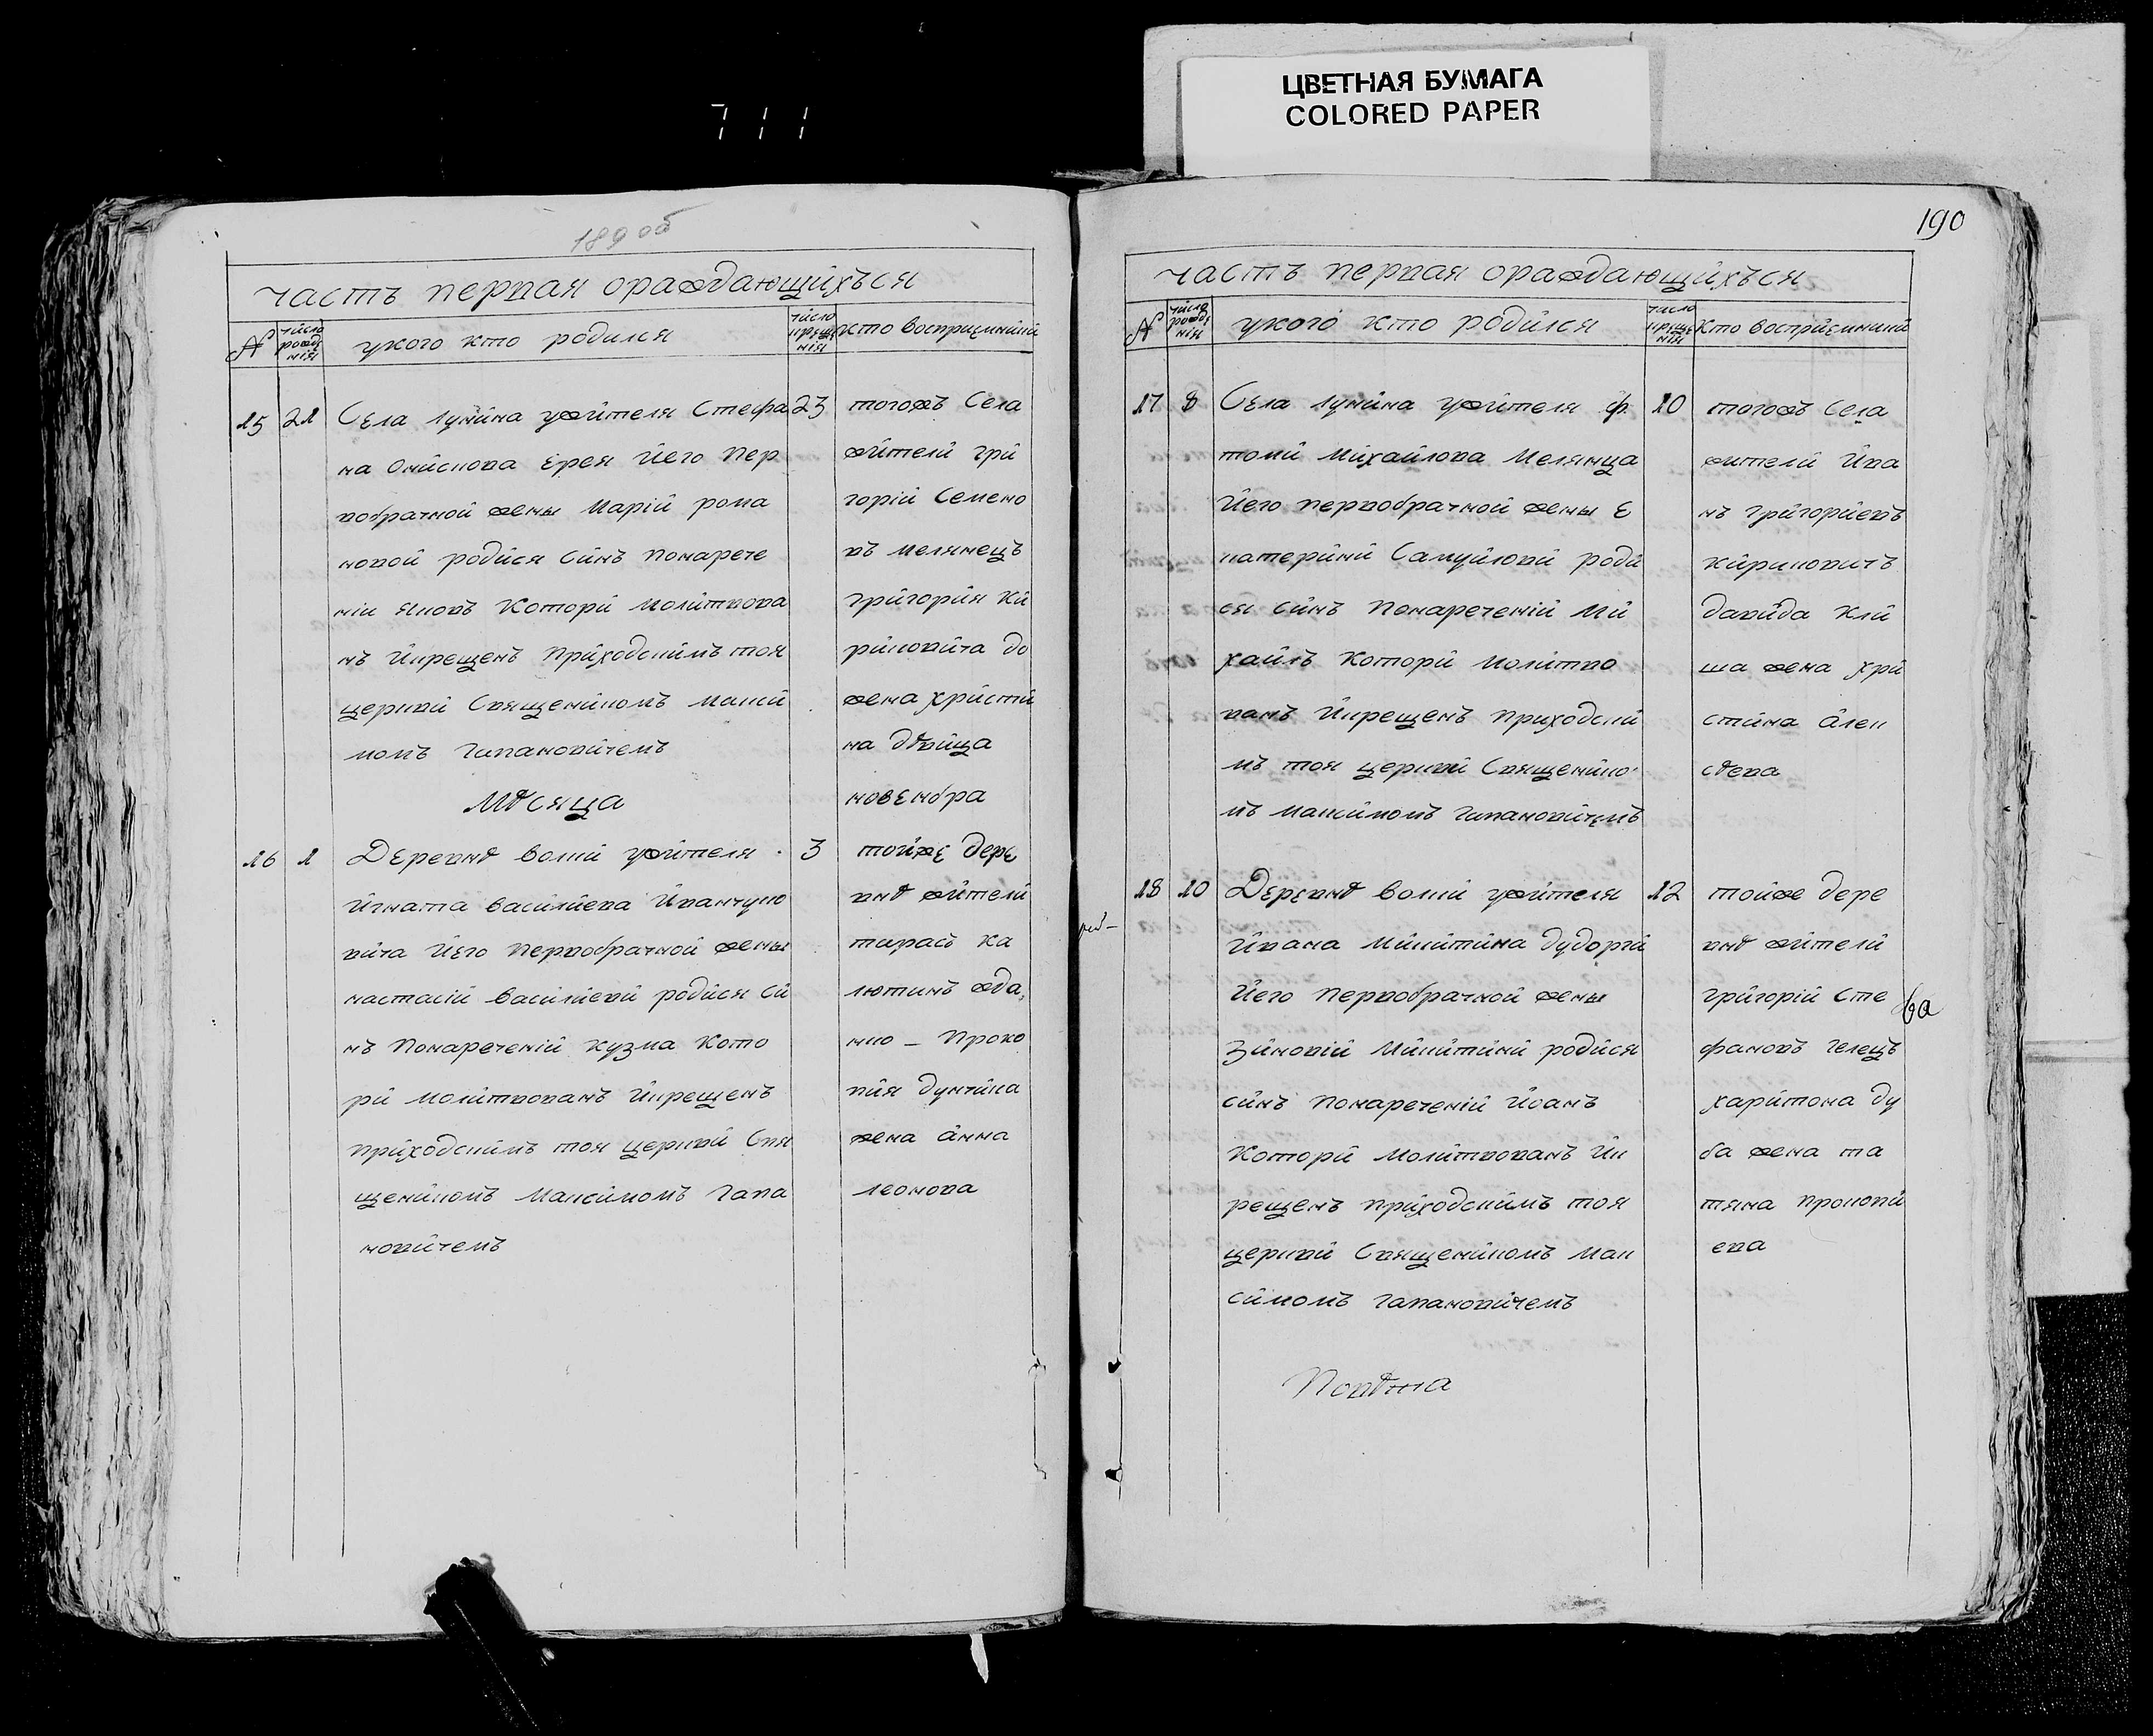 ЦВЕТНАЯ БУМАГА
COLORED PAPER
711
189 об
часть первая ораждающихъся
№
число рожде нія
укого кто родился
число креще нія
кто восприемники
15 21 Села лунина ужителя Стефа 23
на Онискова Ерея Его пер
вобрачной жены Маріи рома
новой родися синъ понарече
ніи яковъ котори молитвова
нъ икрещенъ приходскимъ тоя
церкви Священикомъ макси
момъ гапановичемъ
тогожъ Села
жители гри
горіи Семено
въ мелянецъ
григория ки
риковича до
жена христи
на двица
Мѣсяца новембра
16 1 Деревнѣ волки ужителя 3
игната василиева иванчуко
вича Его первобрачной жены
настасіи василиеви родися си
нъ понареченіи кузма кото
ри молитвованъ икрещенъ
приходскимъ тоя церкви Свя
щеникомъ максимомъ гапа
новичемъ
тойже дере
внѣ жители
тарасъ ка
лютинъ жда
нко - проко
пия дунчика
жена анна
леонова
190
часть первая ораждающихъся
№
число рожде нія
укого кто родился
число креще нія
кто восприемники
17 8 Села лунина ужителя ф 10
томи михайлова мелянца
Его первобрачной жены е
катерини Самуйлови роди
ся синъ понареченіи ми
хаилъ котори молитво
ванъ икрещенъ приходски
мъ тоя церкви Священико
мъ максимомъ гапановичемъ
тогожъ Села
жители ива
нъ григориевъ
кириковичъ
давида кли
ша жена хри
стина алек
сѣева
18 10 Деревнѣ волки ужителя 12
ивана микитина дудорги
Его первобрачной жены
зиновіи микитини родися
синъ понареченіи иоанъ
котори молитвованъ ик
рещенъ приходскимъ тоя
церкви Священикомъ мак
симомъ гапановичемъ
тойже дере
внѣ жители
григоріи сте
фановъ гелецъ
харитона ду
ба жена та
тяна прокопи
ева
ва